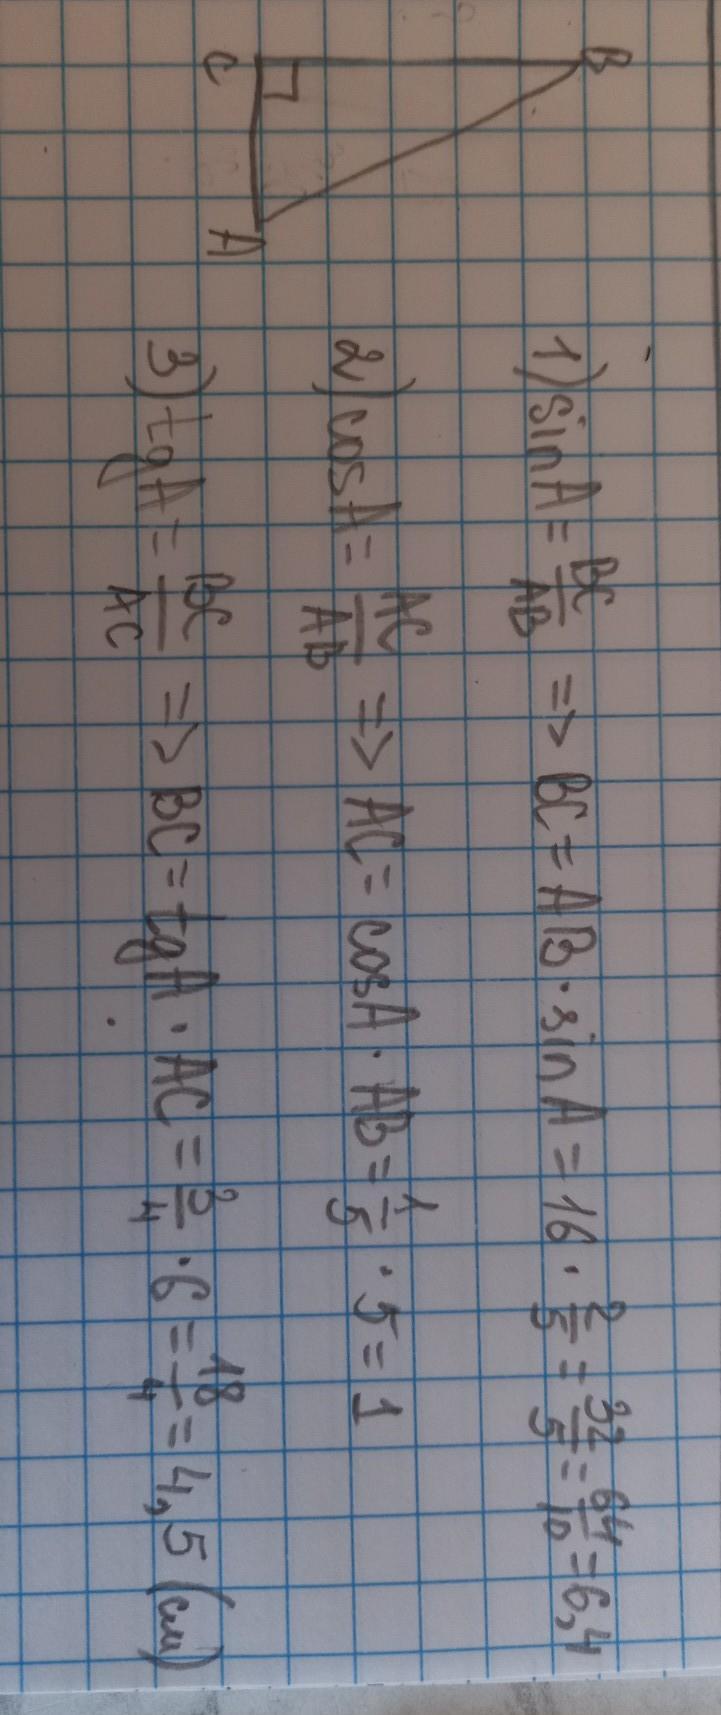 B
C
A
1) sin A = BC/AB => BC = AB · sin A = 16 · 2/5 = 32/5 = 64/10 = 6,4
2) cos A = AC/AB => AC = cos A · AB = 1/5 · 5 = 1
3) tg A = BC/AC => BC = tg A · AC = 3/4 · 6 = 18/4 = 4,5 (см)